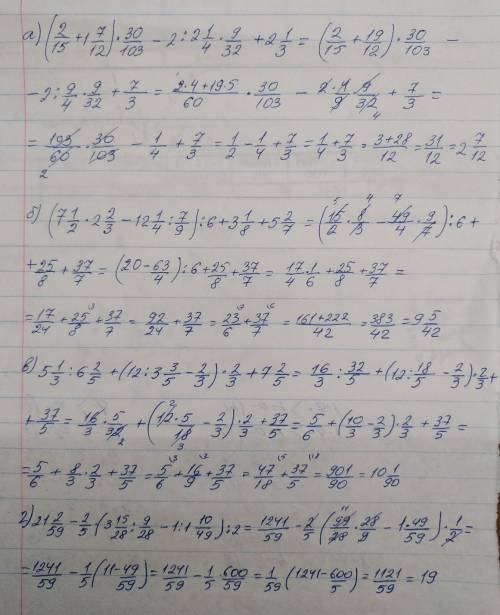 а) (2/15 + 1 7/12) · 30/103 − 2 : 2 1/4 · 9/32 + 2 1/3 = (2/15 + 19/12) · 30/103 −
− 2 : 9/4 · 9/32 + 7/3 = 2·4+19·5/60 · 30/103 − 2·4·9/9·32 4 + 7/3 =
= 103/60 2 · 30/103 − 1/4 + 7/3 = 1/2 − 1/4 + 7/3 = 1/4 + 7/3 = 3+28/12 = 31/12 = 2 7/12
б) (7 1/2 · 2 2/3 − 12 1/4 : 7/9) : 6 + 3 1/8 + 5 2/7 = (15/2 · 8/3 − 49/4 · 9/7) : 6 +
+ 25/8 + 37/7 = (20 − 63/4) : 6 + 25/8 + 37/7 = 17/4 · 1/6 + 25/8 + 37/7 =
= 17/24 + 25/8 + 37/7 = 92/24 + 37/7 = 23/6 + 37/7 = 161+222/42 = 383/42 = 9 5/42
в) 5 1/3 : 6 2/5 + (12 : 3 3/5 − 2/3) · 2/3 + 7 2/5 = 16/3 : 32/5 + (12 : 18/5 − 2/3) · 2/3 +
+ 37/5 = 16/3 · 5/32 2 + (12·5/18 3 − 2/3) · 2/3 + 37/5 = 5/6 + (10/3 − 2/3) · 2/3 + 37/5 =
= 5/6 + 8/3 · 2/3 + 37/5 = 5/6 + 16/9 + 37/5 = 47/18 + 37/5 = 901/90 = 10 1/90
г) 21 2/59 − 2/5 (3 15/28 : 9/28 − 1 : 1 10/49) : 2 = 1241/59 − 2/5 (99/28 · 28/9 − 1 · 49/59) · 1/2 =
= 1241/59 − 1/5 (11 − 49/59) = 1241/59 − 1/5 · 600/59 = 1/59 (1241 − 600/5) = 1121/59 = 19